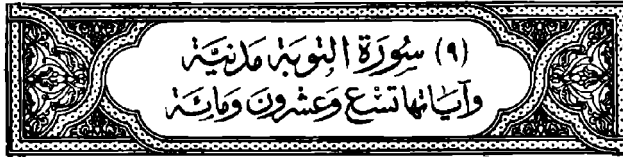 (٩) سُورَة التوبَة مَدنيَّة
وَآيَاتها تسْع وَعشرُونَ وَمائة